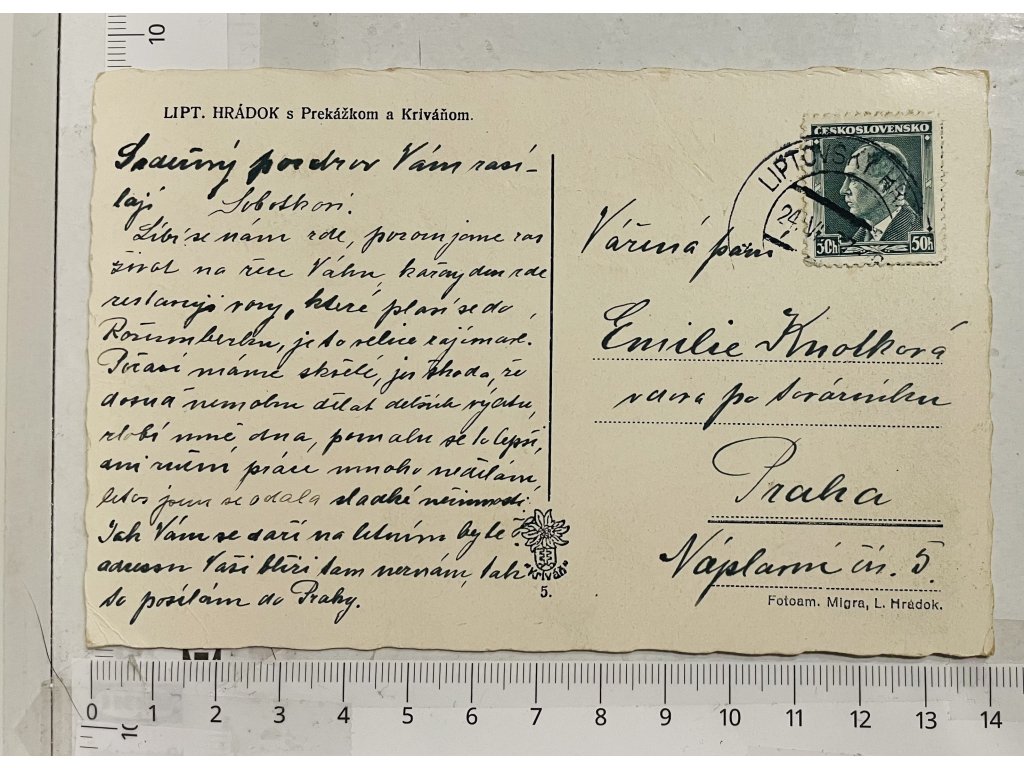 LIPT. HRÁDOK s Prekážkom a Kriváňom.
Srdečný pozdrav Vám zasí-
lají Sobotkovi.
Líbí se nám zde, pozorujeme zas
život na řece Váhu, každý den zde
vory, které plaví se do
Rožumberku, je to velice zajímavé.
Počasí máme skvělé, jen škoda, že
dosud nemohu dělat delších výletů,
zlobí mně dna, pomalu se to lepší,
ani ruční práce mnoho nedělám,
letos jsem se oddala sladké nečinnosti.
Jak Vám se daří na letním bytě?
adressu Vaší bližší tam neznám, tak
to posílám do Prahy.
Křiváň
5.
ČESKOSLOVENSKO
50h 50h
LIPTOVSKÝ HR
24 VI
Vážená paní
Emilie Knotková
vdova po továrníku
Praha
Náplavní čís. 5.
Fotoam. Migra, L. Hrádok.
10
0 1 2 3 4 5 6 7 8 9 10 11 12 13 14
10